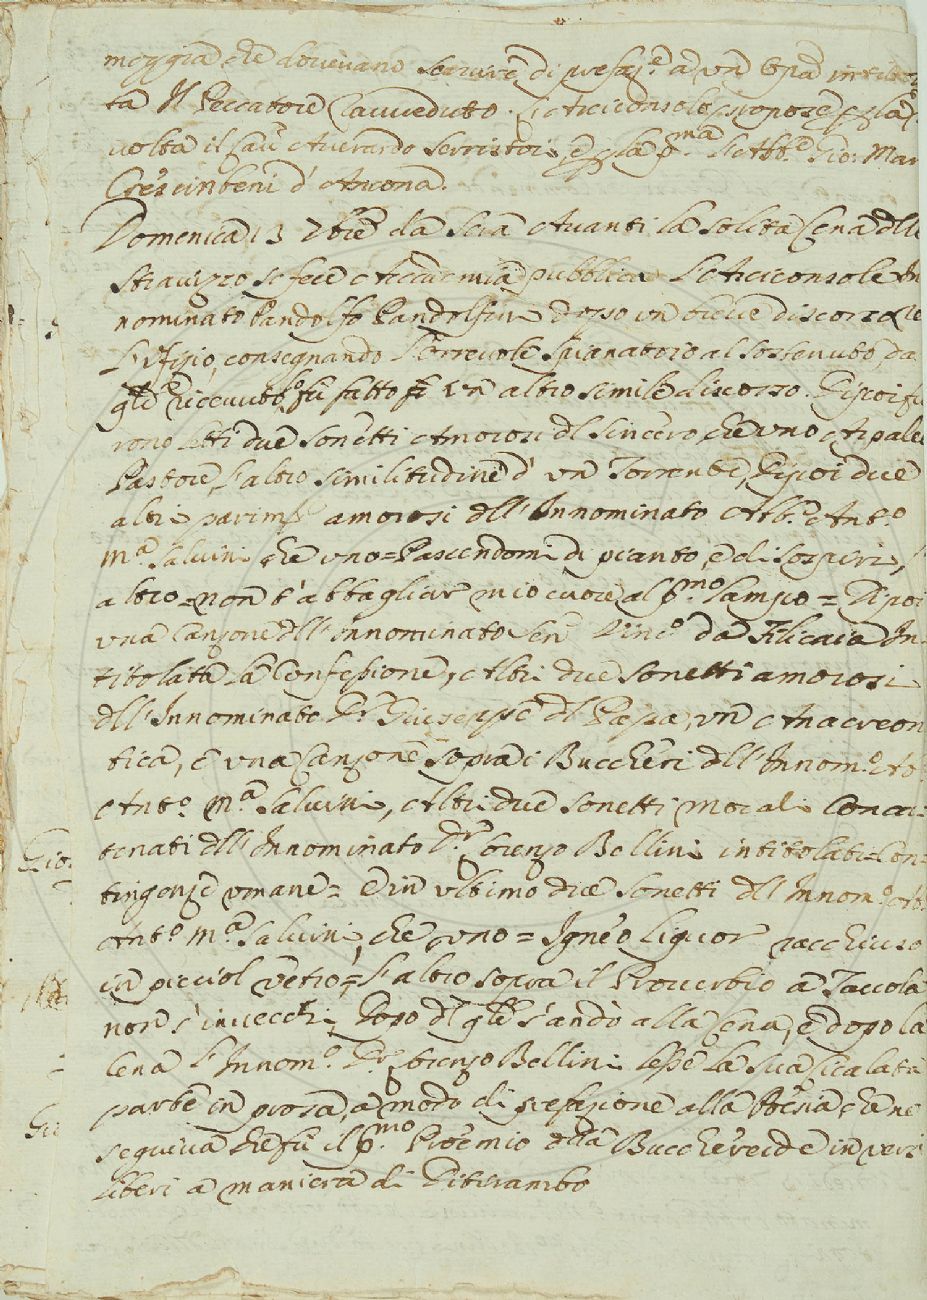 moggia che dovevano servire di prefaz.e a un Opa intitola
ta Il Peccatore Ravveduto. L'Arciconsolo propose
volta il Cav.re Averardo Serristori, e p.ma l'Abb.e Gio: Mar
Crescimbeni d'Ancona.
Domenica 13 7bre la sera Avanti la solita Cena dello
Stravizzo si fece Accademia pubblica. L'Arciconsole In
nominato Pandolfo Pandolfini dopo un breve discorso
l'Ufizio, consegnando l'Orrevole Spianatoio al Sostenuto, da
qle ricevuto fu fatto un altro simile discorso. Dipoi fu
rono letti due sonetti Amorosi del Sincero che uno A
Pastore, l'altro similitudine d'un Torrente, Dipoi due
altri parim.te amorosi dell'Innominato Abb.e Ant.o
M.a Salvini che uno = Pascendomi di pianto, e di sospiri, l'
altro = non t'abbagliar mio cuore al p.mo lampo = Dipoi
una Canzone dell'Innominato Sen.e Vinc.o da Filicaia In
titolata La Confessione, Altri due sonetti amorosi
dell'Innominato D.r Giuseppe del Papa, un Anacreon
tica, e una Canzone sopra i Buccheri dell'Innom.o Ab
Ant.o M.a Salvini, Altri due sonetti morali Conca-
tenati dell'Innominato D.r Lorenzo Bellini intitolati Con-
tingenze umane = E in ultimo due sonetti dell'Innom.o Ab.
Ant.o M.a Salvini, che uno = Igneo liquor racchiuso
in picciol vetro = l'altro sopra il Proverbio a Tavola
non s'invecchi. Dopo del qle s'andò alla Cena, e dopo la
Cena l'Innom.o D.r Lorenzo Bellini lesse la sua Cicalata
parte in prosa, a modo di prefazione alla Poesia che ne
seguiva che fu il p.mo Proemio della Bucchereide in versi
liberi a maniera di Ditirambo
Gio: